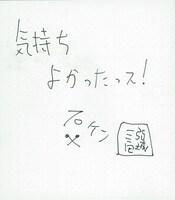 気持ち
よかったっス!
石ケン